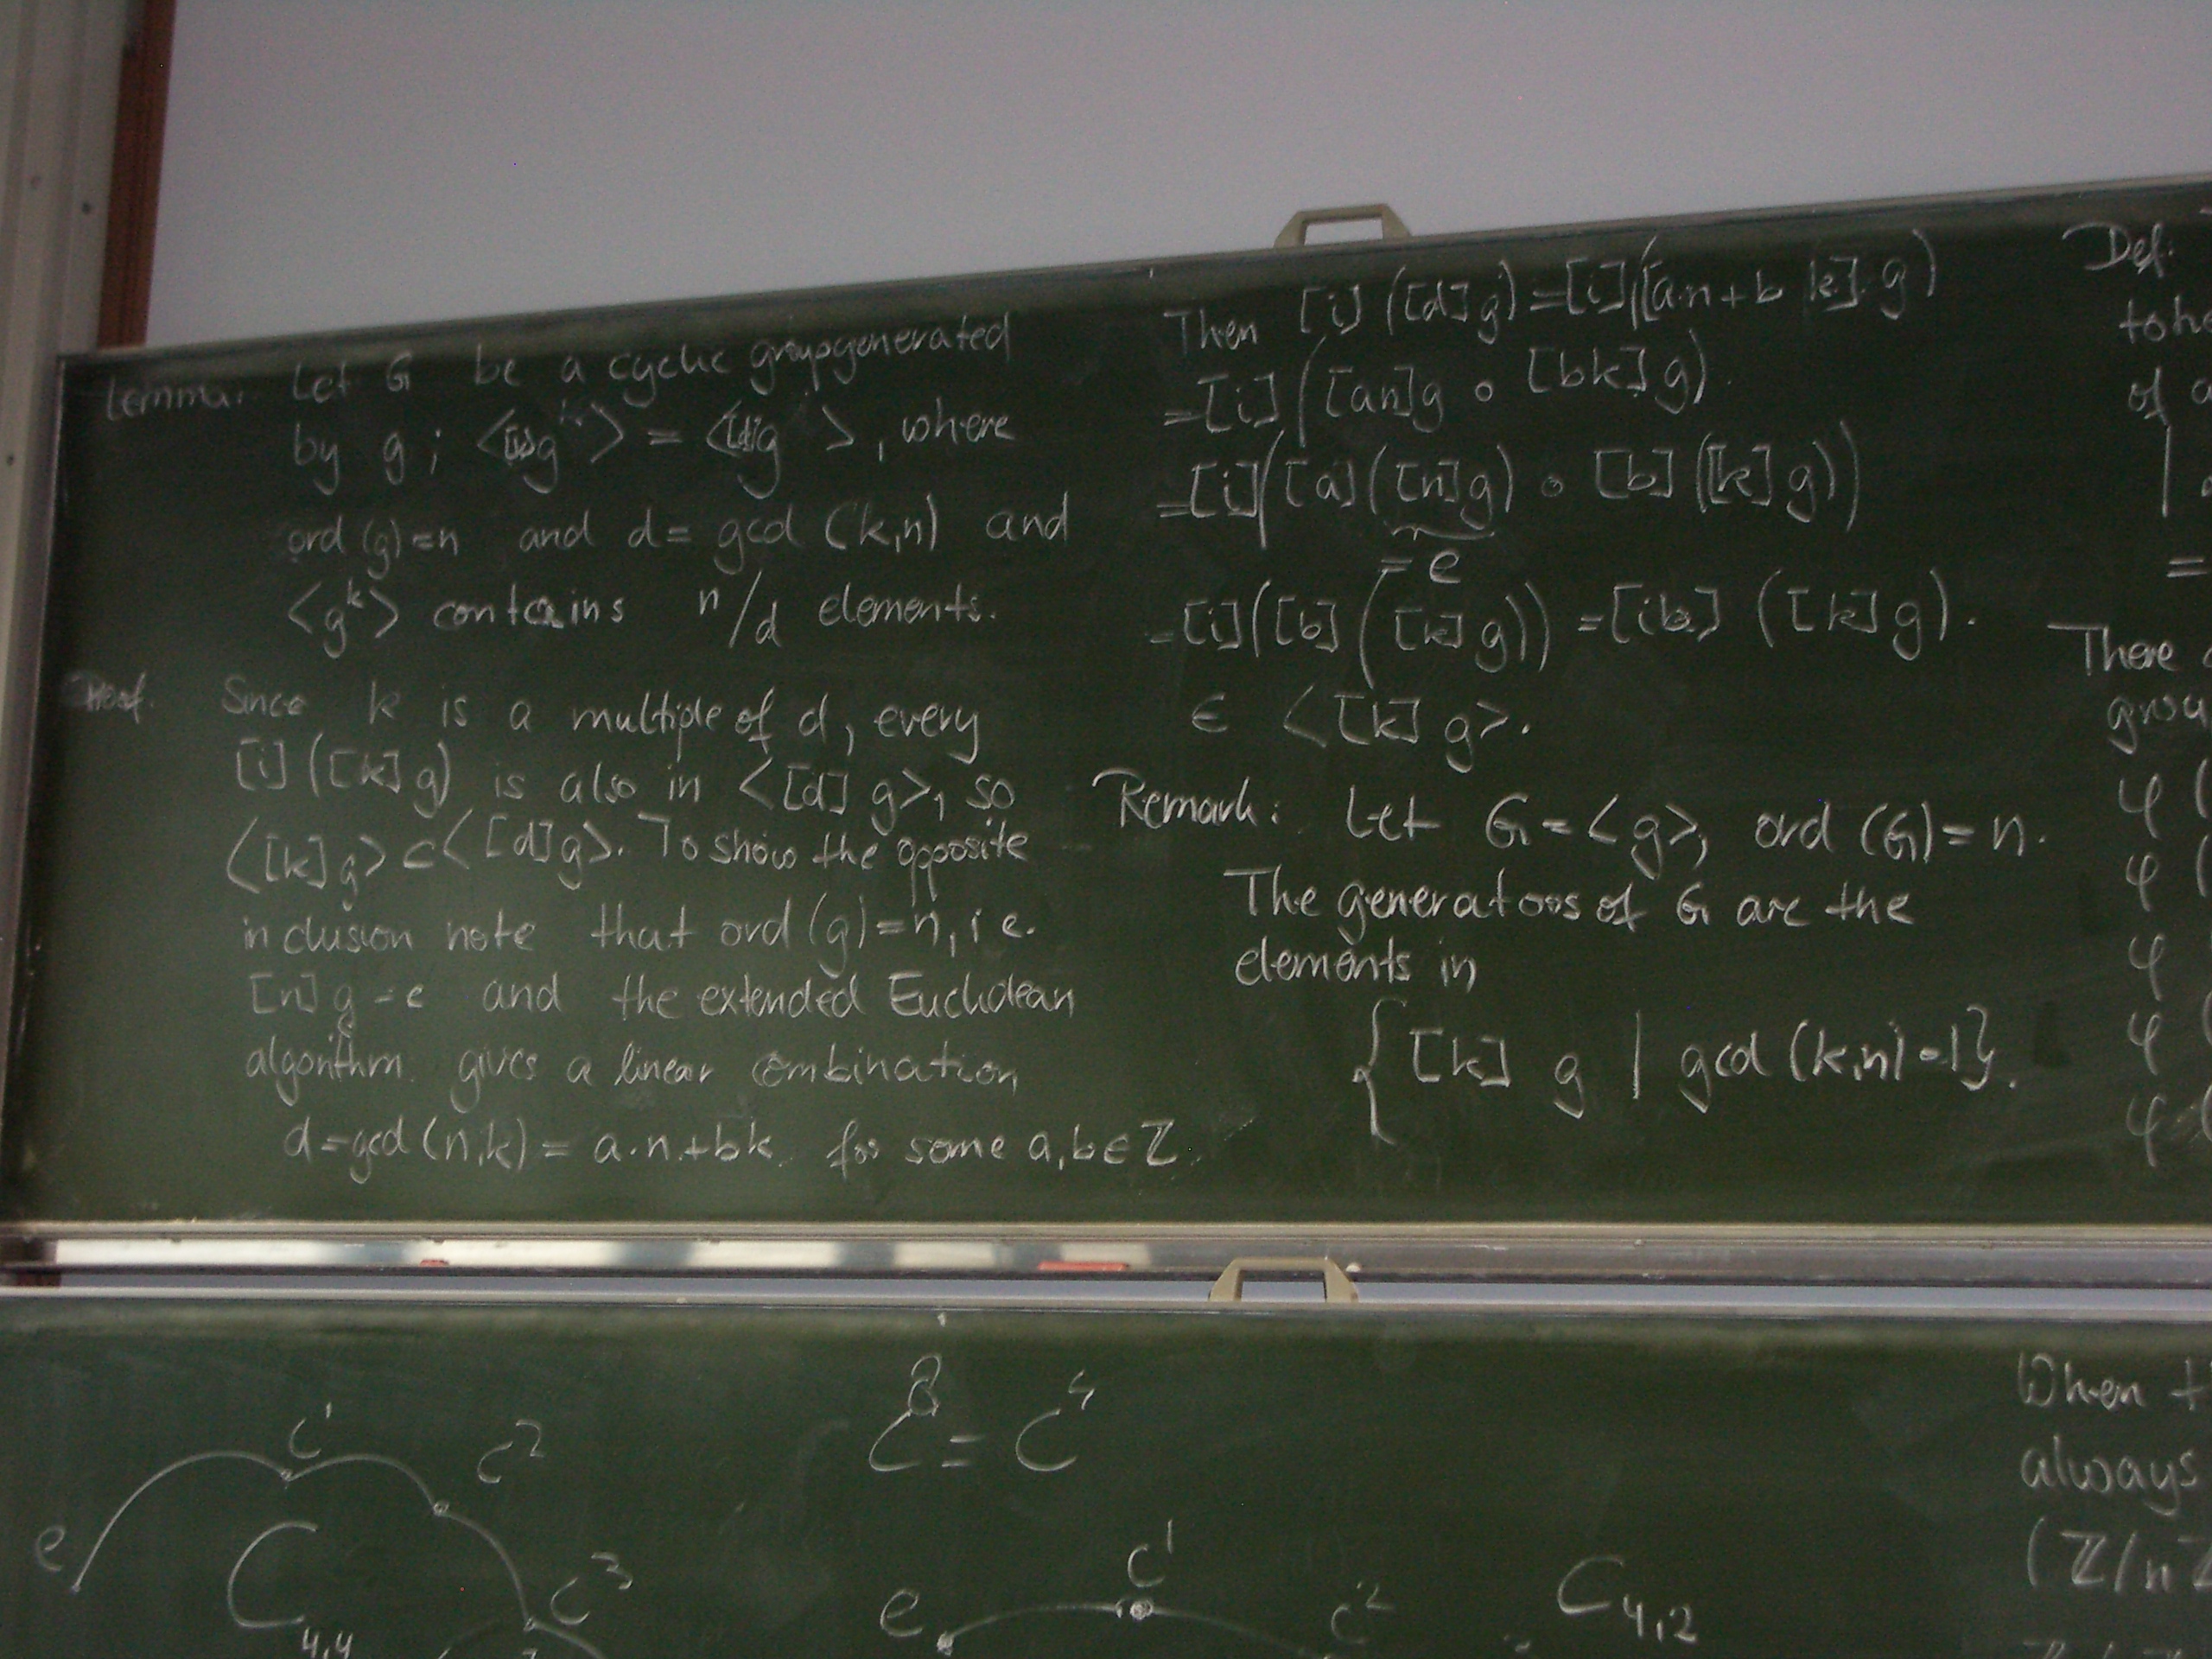 Lemma: Let G be a cyclic group generated
by g; <[k]g> = <[d]g>, where
ord (g)=n and d= gcd (k,n) and
<g^k> contains n/d elements.
Proof. Since k is a multiple of d, every
[i]([k]g) is also in <[d] g>, so
<[k]g> ⊂ <[d]g>. To show the opposite
inclusion note that ord(g)=n, i.e.
[n]g=e and the extended Euclidean
algorithm gives a linear combination
d=gcd(n,k) = a·n+bk for some a,b∈ℤ.
Then [i]([d]g)=[i]([a·n+b k] g)
=[i]([an]g ∘ [bk]g)
=[i]([a]([n]g) ∘ [b]([k]g))
=e
=[i]([b]([k]g)) =[ib] ([k]g).
∈ <[k]g>.
Remark: Let G=<g>, ord (G)=n.
The generators of G are the
elements in
{[k] g | gcd(k,n)=1}.
Def:
of
=
There
φ (
φ (
φ
φ (
φ (
C^8 = C^4
e C^1 C^2 C^3
C_4,4
e C^1 C^2 C_4,2
When
always
(ℤ/n